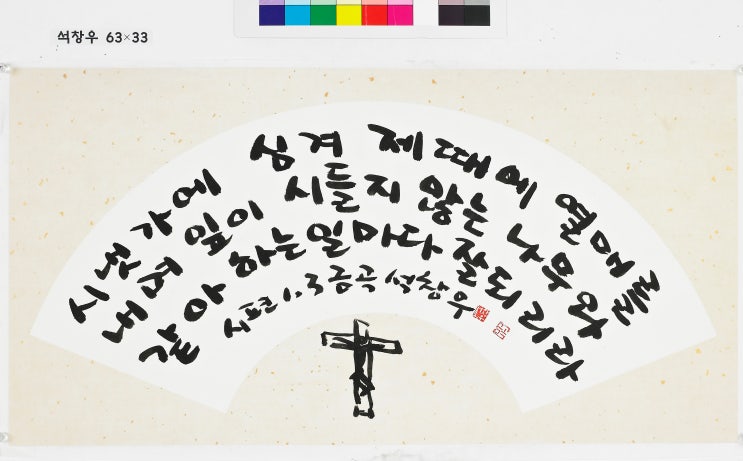 석창우 63×33
시냇가에 심겨 제때에 열매를
내며 잎이 시들지 않는 나무와
같아 하는 일마다 잘되리라
시편 1,3 금곡 석창우